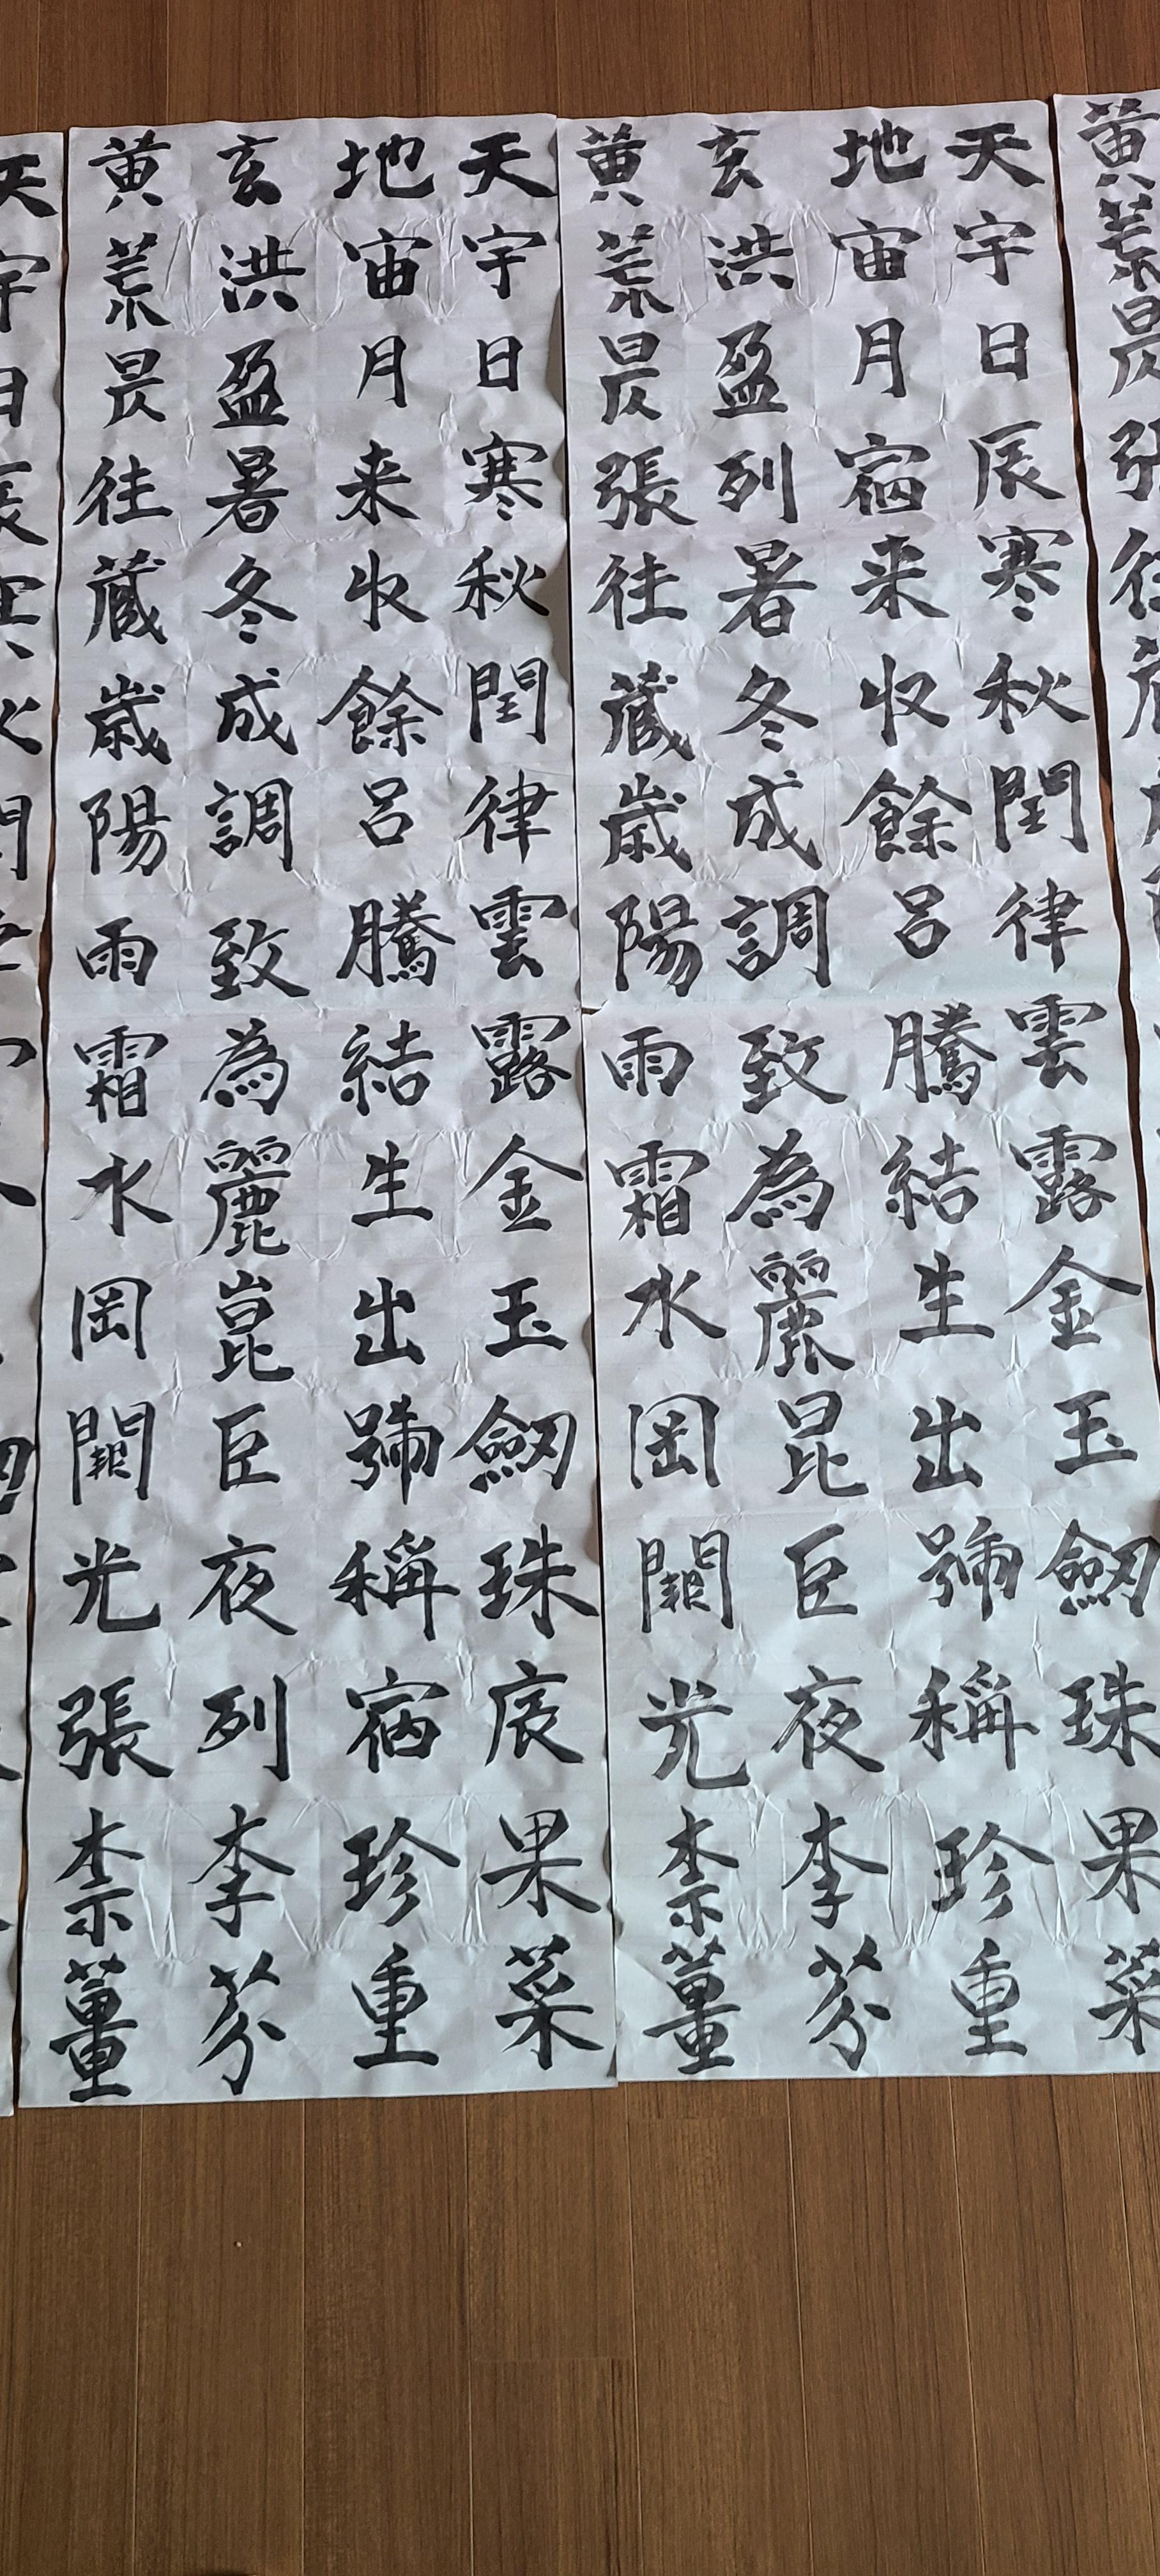 黄
荒
昃
天地玄黄
宇宙洪荒
日月盈昃
辰宿列張
寒来暑往
秋収冬蔵
閏餘成歳
律呂調陽
雲騰致雨
露結為霜
金生麗水
玉出昆岡
劔號巨闕
珠稱夜光
果珍李柰
菜重芥薑
天地玄黄
宇宙洪荒
日月盈昃
寒来暑往
秋収冬蔵
閏餘成歳
律呂調陽
雲騰致雨
露結為霜
金生麗水
玉出崑岡
劔號巨闕
珠稱夜光
辰宿列張
果珍李柰
菜重芥薑